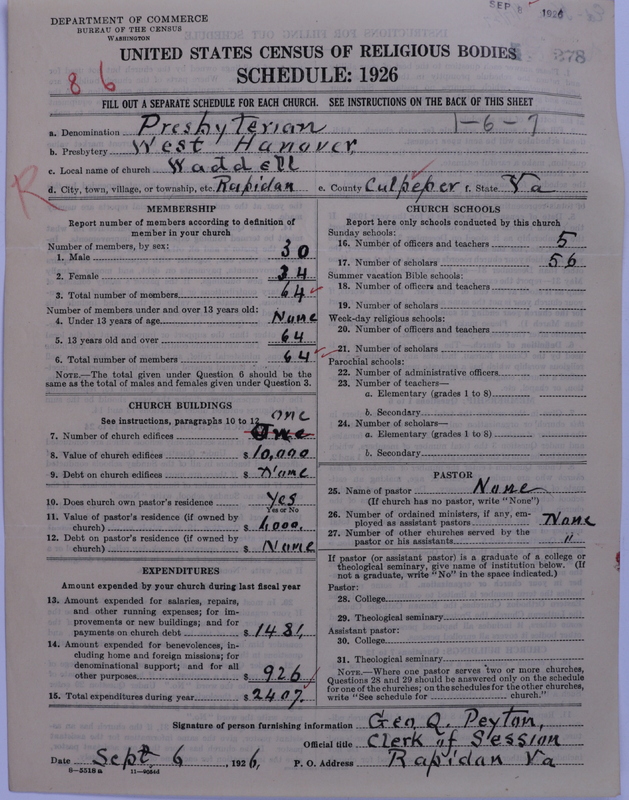 DEPARTMENT OF COMMERCE
BUREAU OF THE CENSUS
WASHINGTON
SEP 1926
UNITED STATES CENSUS OF RELIGIOUS BODIES
278
SCHEDULE: 1926
86
FILL OUT A SEPARATE SCHEDULE FOR EACH CHURCH. SEE INSTRUCTIONS ON THE BACK OF THIS SHEET
a. Denomination Presbyterian 1-6-7
b. Presbytery West Hanover
c. Local name of church Waddell
R
d. City, town, village, or township, etc. Rapidan e. County Culpeper f. State Va
MEMBERSHIP
Report number of members according to definition of
member in your church
Number of members, by sex:
1. Male 30
2. Female 34
3. Total number of members 64
Number of members under and over 13 years old:
4. Under 13 years of age None
5. 13 years old and over 64
6. Total number of members 64
NOTE.—The total given under Question 6 should be
same as the total of males and females given under Question 3.
CHURCH BUILDINGS
See instructions, paragraphs 10 to 12 one
7. Number of church edifices One
8. Value of church edifices $ 10,000
9. Debt on church edifices $ None
10. Does church own pastor's residence Yes
Yes or No
11. Value of pastor's residence (if owned by
church) $ 6000.
12. Debt on pastor's residence (if owned by
church) $ None
EXPENDITURES
Amount expended by your church during last fiscal year
13. Amount expended for salaries, repairs,
and other running expenses; for im-
provements or new buildings; and for
payments on church debt $ 1481,
14. Amount expended for benevolences, in-
cluding home and foreign missions; for
denominational support; and for all
other purposes $ 926
15. Total expenditures during year $ 2407.
CHURCH SCHOOLS
Report here only schools conducted by this church
Sunday schools:
16. Number of officers and teachers 5
17. Number of scholars 56
Summer vacation Bible schools:
18. Number of officers and teachers
19. Number of scholars
Week-day religious schools:
20. Number of officers and teachers
21. Number of scholars
Parochial schools:
22. Number of administrative officers
23. Number of teachers—
a. Elementary (grades 1 to 8)
b. Secondary
24. Number of scholars—
a. Elementary (grades 1 to 8)
b. Secondary
PASTOR
25. Name of pastor None
(If church has no pastor, write "None")
26. Number of ordained ministers, if any, em-
ployed as assistant pastors None
27. Number of other churches served by the
pastor or his assistants "
If pastor (or assistant pastor) is a graduate of a college or
theological seminary, give name of institution below. (If
not a graduate, write "No" in the space indicated.)
Pastor:
28. College
29. Theological seminary
Assistant pastor:
30. College
31. Theological seminary
NOTE.—Where one pastor serves two or more churches,
Questions 28 and 29 should be answered only on the schedule
for one of the churches; on the schedules for the other churches,
write "See schedule for church."
Signature of person furnishing information Geo Q. Peyton,
Official title Clerk of Session
Date Sept 6, 1926. P. O. Address Rapidan Va
8-5518a 11-9084d